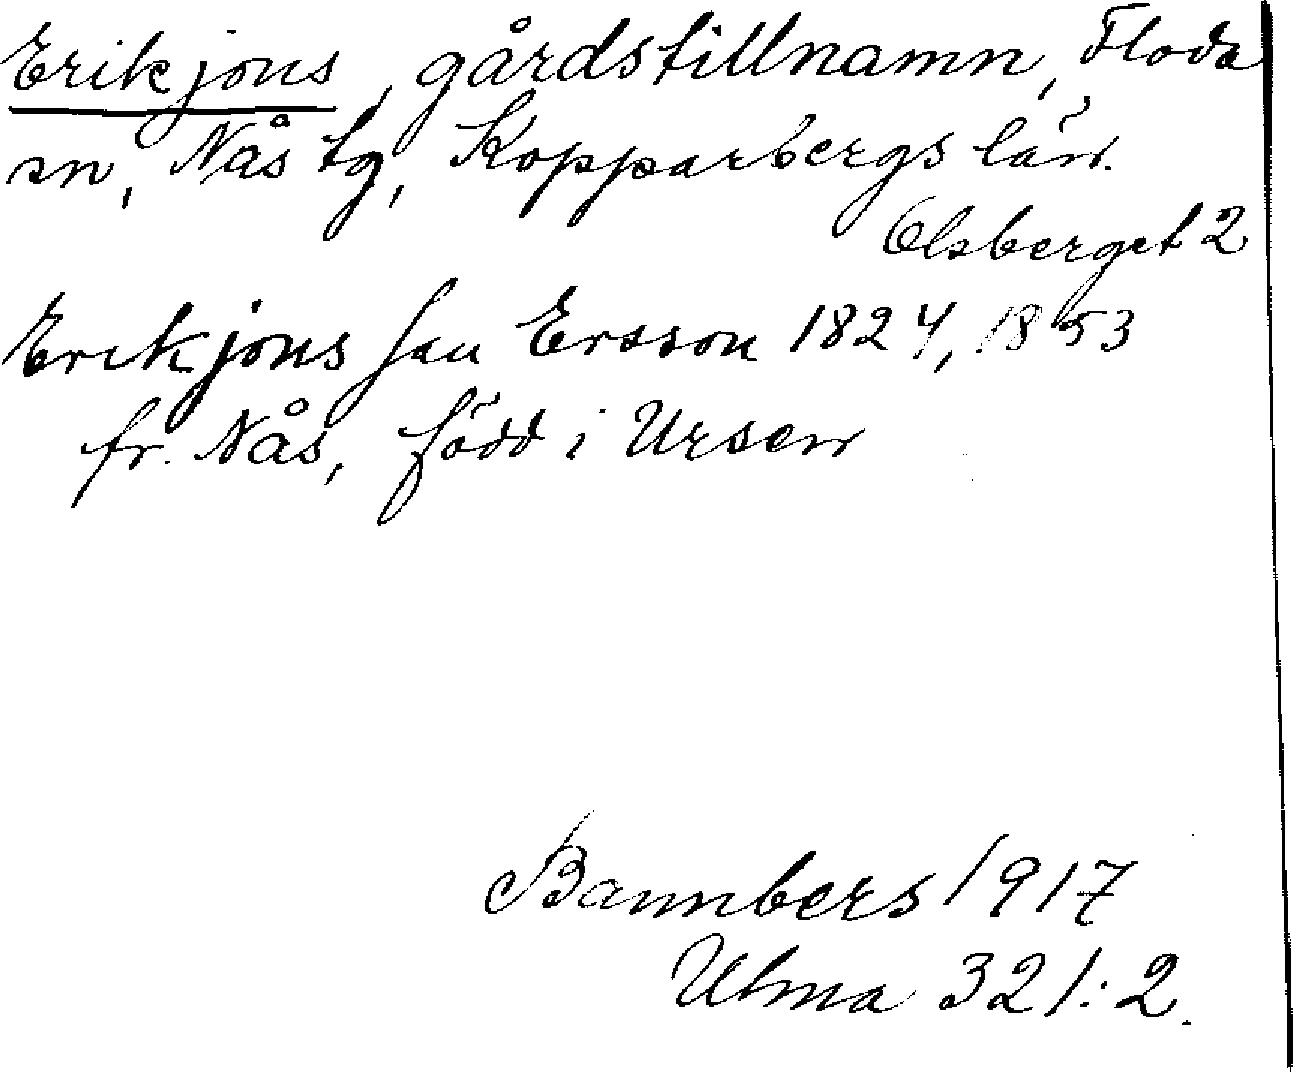 Erikjons, gårdstillnamn, Floda
sn, Nås tg, Kopparbergs län.
Olsberget 2
Erikjons Jan Ersson 1824, 1853
fr. Nås, född i Ursen
Bannbers 1917
Ulma 321:2.